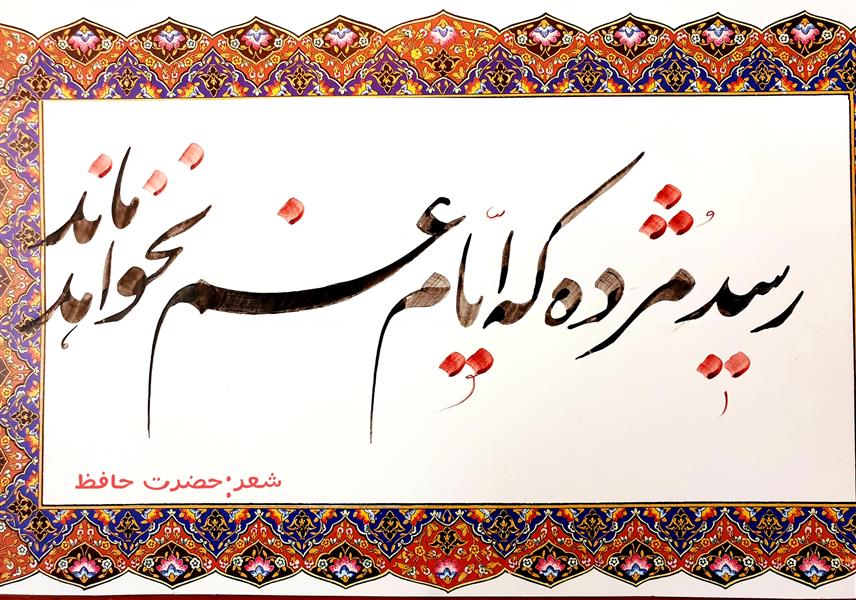 رسید مژده که ایّام غم نخواهد ماند
شعر: حضرت حافظ